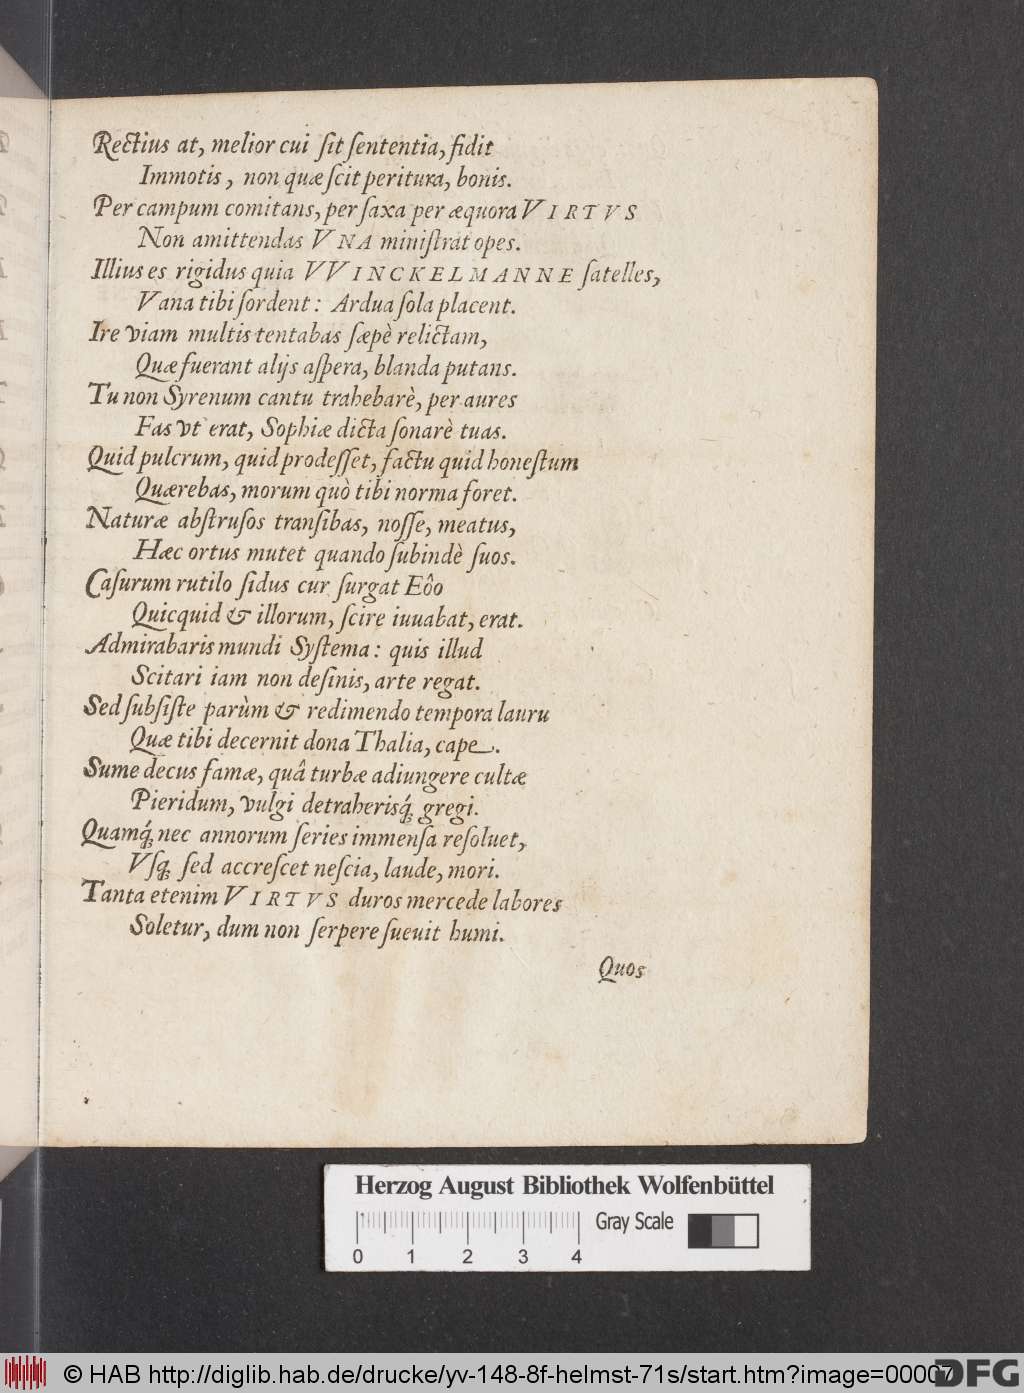 Rectius at, melior cui ſit ſententia, fidit
Immotis, non quæ ſcit peritura, bonis.
Per campum comitans, per ſaxa per æquora VIRTVS
Non amittendas VNA miniſtrat opes.
Illius es rigidus quia VVINCKELMANNE ſatelles,
Vana tibi ſordent: Ardua ſola placent.
Ire viam multis tentabas ſæpè relictam,
Quæ fuerant alijs aſpera, blanda putans.
Tu non Syrenum cantu trahebarè, per aures
Fas vt erat, Sophiæ dicta ſonarè tuas.
Quid pulcrum, quid prodeſſet, factu quid honeſtum
Quærebas, morum quò tibi norma foret.
Naturæ abſtruſos tranſibas, noſſe, meatus,
Hæc ortus mutet quando ſubindè ſuos.
Caſurum rutilo ſidus cur ſurgat Eôo
Quicquid & illorum, ſcire iuuabat, erat.
Admirabaris mundi Syſtema: quis illud
Scitari iam non deſinis, arte regat.
Sed ſubſiſte parùm & redimendo tempora lauru
Quæ tibi decernit dona Thalia, cape.
Sume decus famæ, quâ turbæ adiungere cultæ
Pieridum, vulgi detraherisq́; gregi.
Quamq́; nec annorum ſeries immenſa reſoluet,
Vſq; ſed accreſcet neſcia, laude, mori.
Tanta etenim VIRTVS duros mercede labores
Soletur, dum non ſerpere ſueuit humi.
Quos
Herzog August Bibliothek Wolfenbüttel
Gray Scale
0 1 2 3 4
© HAB http://diglib.hab.de/drucke/yv-148-8f-helmst-71s/start.htm?image=00007
DFG